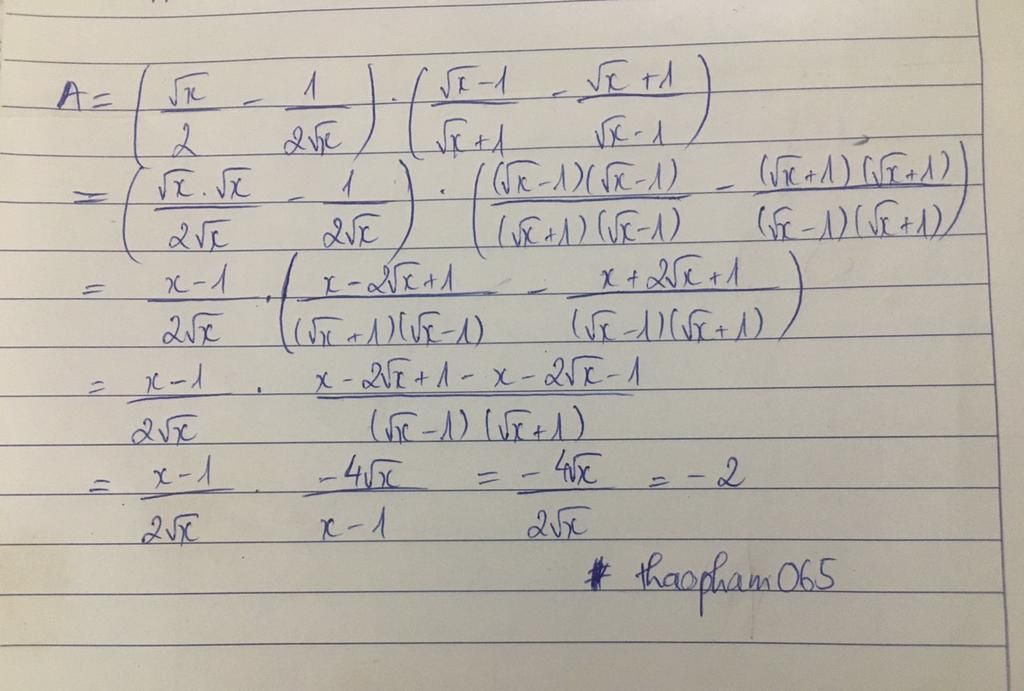 A = (√x/2 - 1/2√x) . (√x-1/√x+1 - √x+1/√x-1)
= (√x.√x/2√x - 1/2√x) . ((√x-1)(√x-1)/(√x+1)(√x-1) - (√x+1)(√x+1)/(√x-1)(√x+1))
= x-1/2√x . (x-2√x+1/(√x+1)(√x-1) - x+2√x+1/(√x-1)(√x+1))
= x-1/2√x . x-2√x+1-x-2√x-1/(√x-1)(√x+1)
= x-1/2√x . -4√x/x-1 = -4√x/2√x = -2
# thaopham065